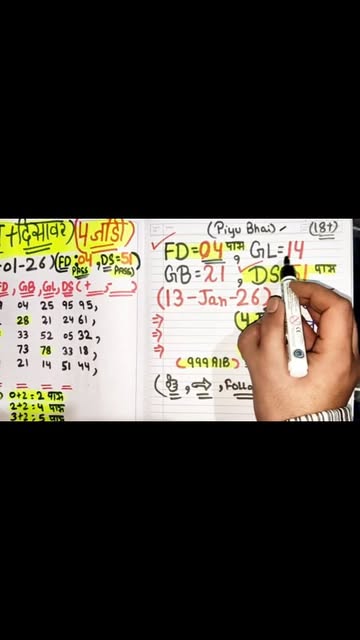 +दिसावर) (4 जोड़ी)
-01-26) (FD=04, DS=51)
PASS PASS)
FD, GB, GL, DS (
04 25 95 95,
28 21 24 61,
33 52 05 32,
73 78 33 18,
21 14 51 44,
0+2=2 पास
2+2=4 पास
3+2=5 पास
(Piyu Bhai) (18+)
FD=04 पास, GL=14
GB=21, DS=51 पास
(13-Jan-26)
⇒
⇒
⇒
(999 RIB)
, Follo